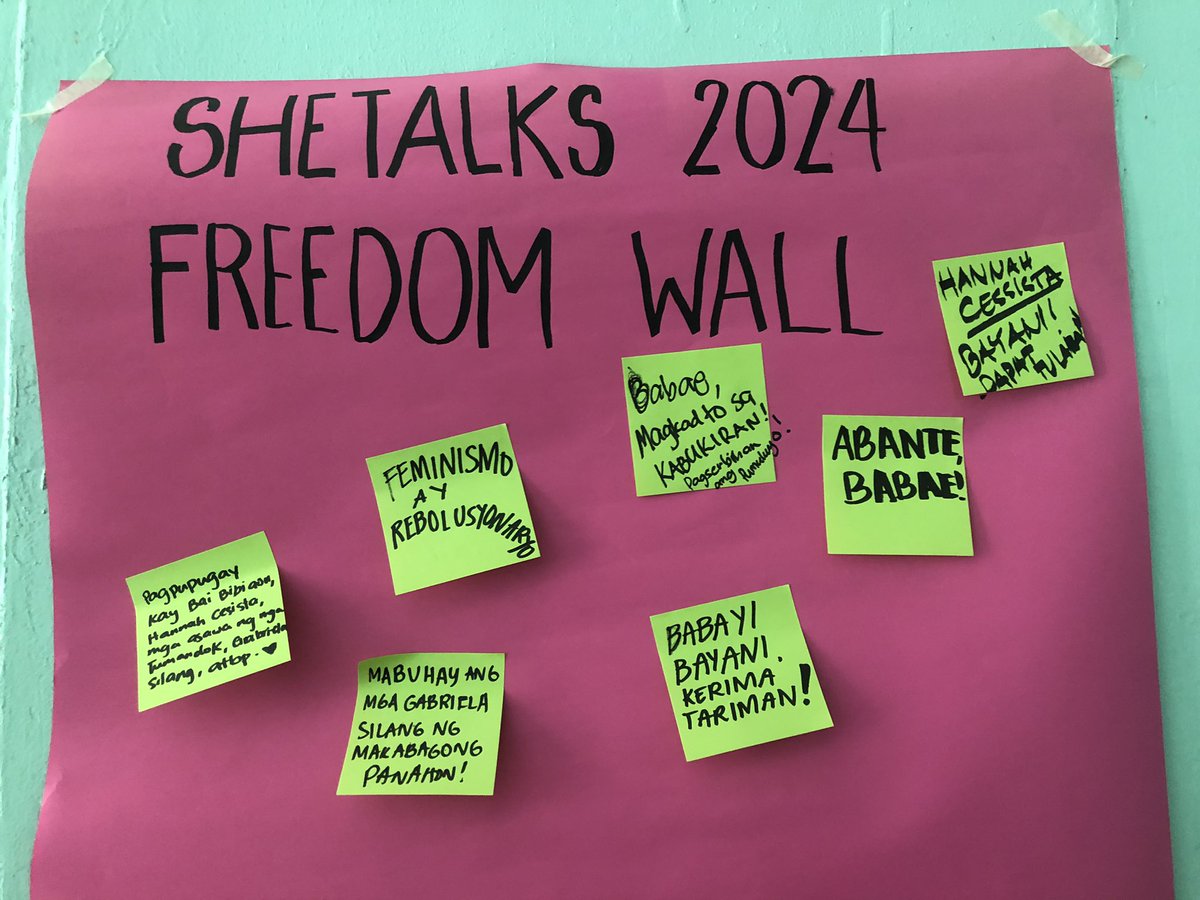 SHETALKS 2024
FREEDOM WALL
HANNAH
CESSISTA
BAYANI
DAPAT TULARAN
Babae,
Magkadto sa
KABUKIRAN!
Pagserbihan
ang Pumuluyo!
ABANTE,
BABAE!
FEMINISMO
AY
REBOLUSYONARYO
Pagpupugay
kay Bai Bibiaon,
Hannah Cesista,
mga asawa ng mga
Tumandok, Gabriela
Silang, atbp. ♥
MABUHAY ANG
MGA GABRIELA
SILANG NG
MAKABAGONG
PANAHON!
BABAYI
BAYANI.
KERIMA
TARIMAN!